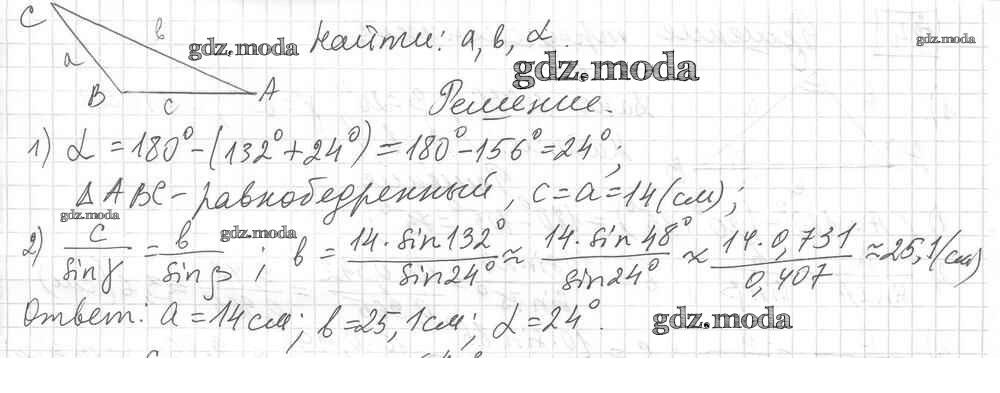 C
в
gdz.moda
Найти: a, в, α.
gdz.moda
a
gdz.moda
B
c
A
Решение.
1) α = 180° - (132° + 24°) = 180° - 156° = 24°;
△ABC - равнобедренный, c = a = 14 (см);
gdz.moda
2) c/sinγ = в/sinβ ; в = 14·sin132°/sin24° ≈ 14·sin48°/sin24° ≈ 14·0,731/0,407 ≈ 25,1 (см)
gdz.moda
Ответ: a = 14 см; в = 25,1 см; α = 24°.
gdz.moda